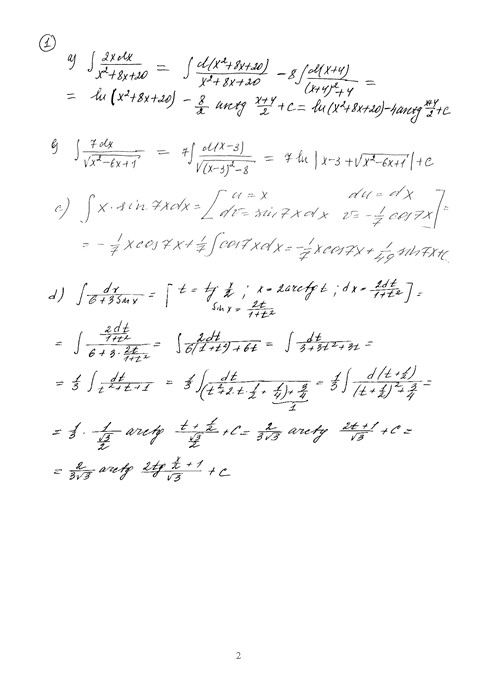 1
a) ∫ 2xdx / (x²+8x+20) = ∫ d(x²+8x+20) / (x²+8x+20) − 8∫ d(x+4) / ((x+4)²+4) =
= ln(x²+8x+20) − 8/2 arctg (x+4)/2 + C = ln(x²+8x+20) − 4arctg (x+4)/2 + C
b) ∫ 7dx / √(x²−6x+1) = 7∫ d(x−3) / √((x−3)²−8) = 7 ln |x−3+√(x²−6x+1)| + C
c) ∫ x·sin7xdx = [u=x du=dx
dv=sin7xdx v=−1/7 cos7x] =
= −1/7 xcos7x + 1/7 ∫ cos7xdx = −1/7 xcos7x + 1/49 sin7x+C
d) ∫ dx / (6+3sinx) = [t = tg x/2 ; x = 2arctg t ; dx = 2dt / (1+t²)
sinx = 2t / (1+t²)] =
= ∫ (2dt / (1+t²)) / (6+3·2t / (1+t²)) = ∫ 2dt / (6(1+t²)+6t) = ∫ dt / (3+3t²+3t) =
= 1/3 ∫ dt / (t²+t+1) = 1/3 ∫ dt / ((t²+2·t·1/2+1/4)+3/4) = 1/3 ∫ d(t+1/2) / ((t+1/2)²+3/4) =
1
= 1/3 · 1 / (√3/2) arctg (t+1/2) / (√3/2) + C = 2 / (3√3) arctg (2t+1) / √3 + C =
= 2 / (3√3) arctg (2tg x/2 + 1) / √3 + C
2